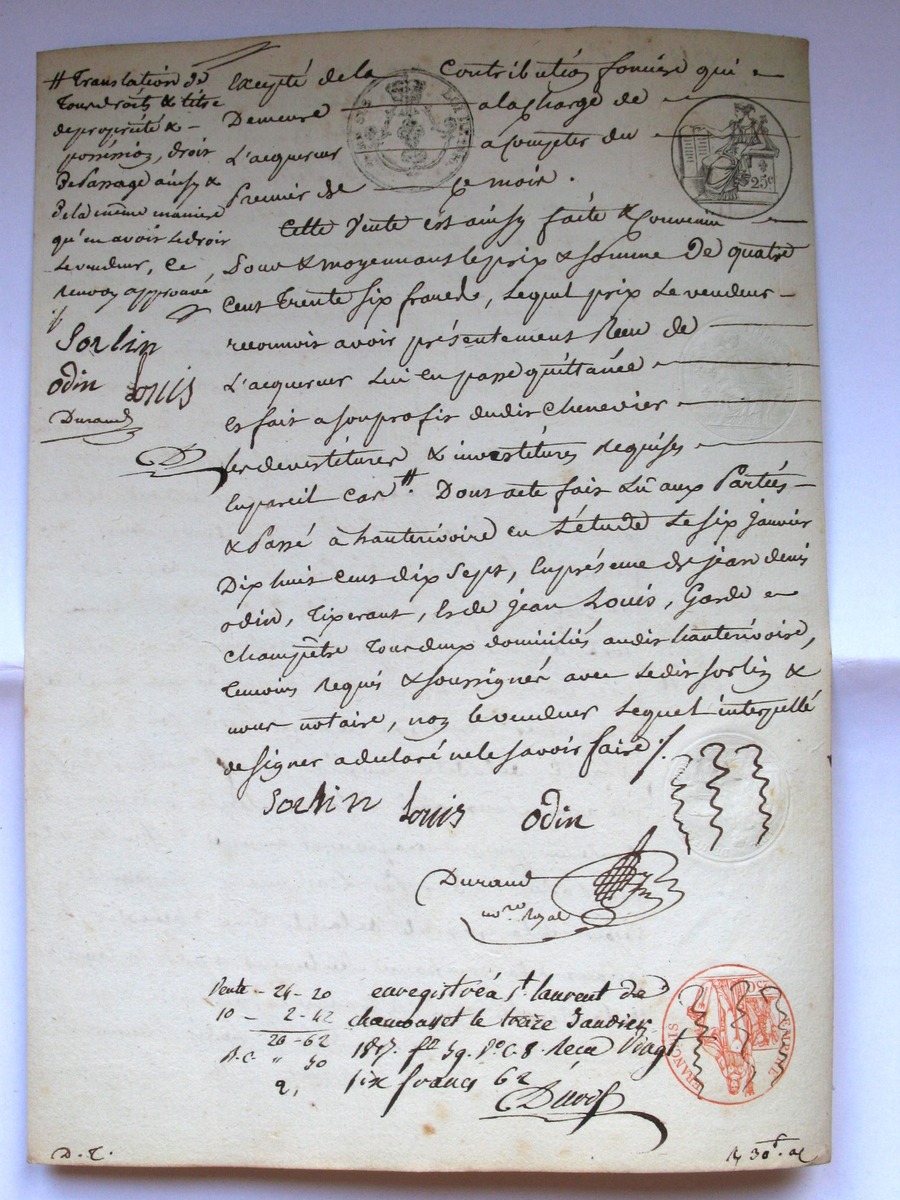 # Translation de
tous droits & titre
de propriété &
possession, droit
de passage ainsy &
de la même maniere
qu'en avoit le droit
le vendeur, Ce
renvoy approuvé
Sorlin
odin Louis
Durand
Excepté de la Contribution fonciere qui
Demeure a la charge de
L'acquereur a compter du
Premier de Ce mois.
25c
Cette Vente est ainsy faite & Convenue
Pour & moyennant le prix & somme De quatre
Cent Trente six francs, lequel prix Le vendeur
reconnoit avoir présentement Recu de
L'acquereur Lui en passe quittance
et fait a son profit dudit Chenevier
les devestitures & investitures Requises
En pareil Cas #. Dont acte fait Lû aux Parties
& Passé à hauterivoire en L'étude Le six Janvier
Dix huit cent dix Sept, En présence de jean denis
odin, Tixerant, et de Jean Louis, Garde
Champêtre Tous deux domiciliés audit hauterivoire,
Temoins Requis & soussignés avec Ledit Sorlin &
nous notaire, non le vendeur Lequel interpellé
de signer a declaré ne le savoir faire ./.
Sorlin Louis odin
Durand
no.re Royal
Vente - 24-20
10 - 2-42
26-62
D.C. " 50
2,
enregistré a St. laurent de
chamousset le treize Janvier
1817. fo. 59. Vo. C. 8. Recu Vingt
six francs 62
D. T.